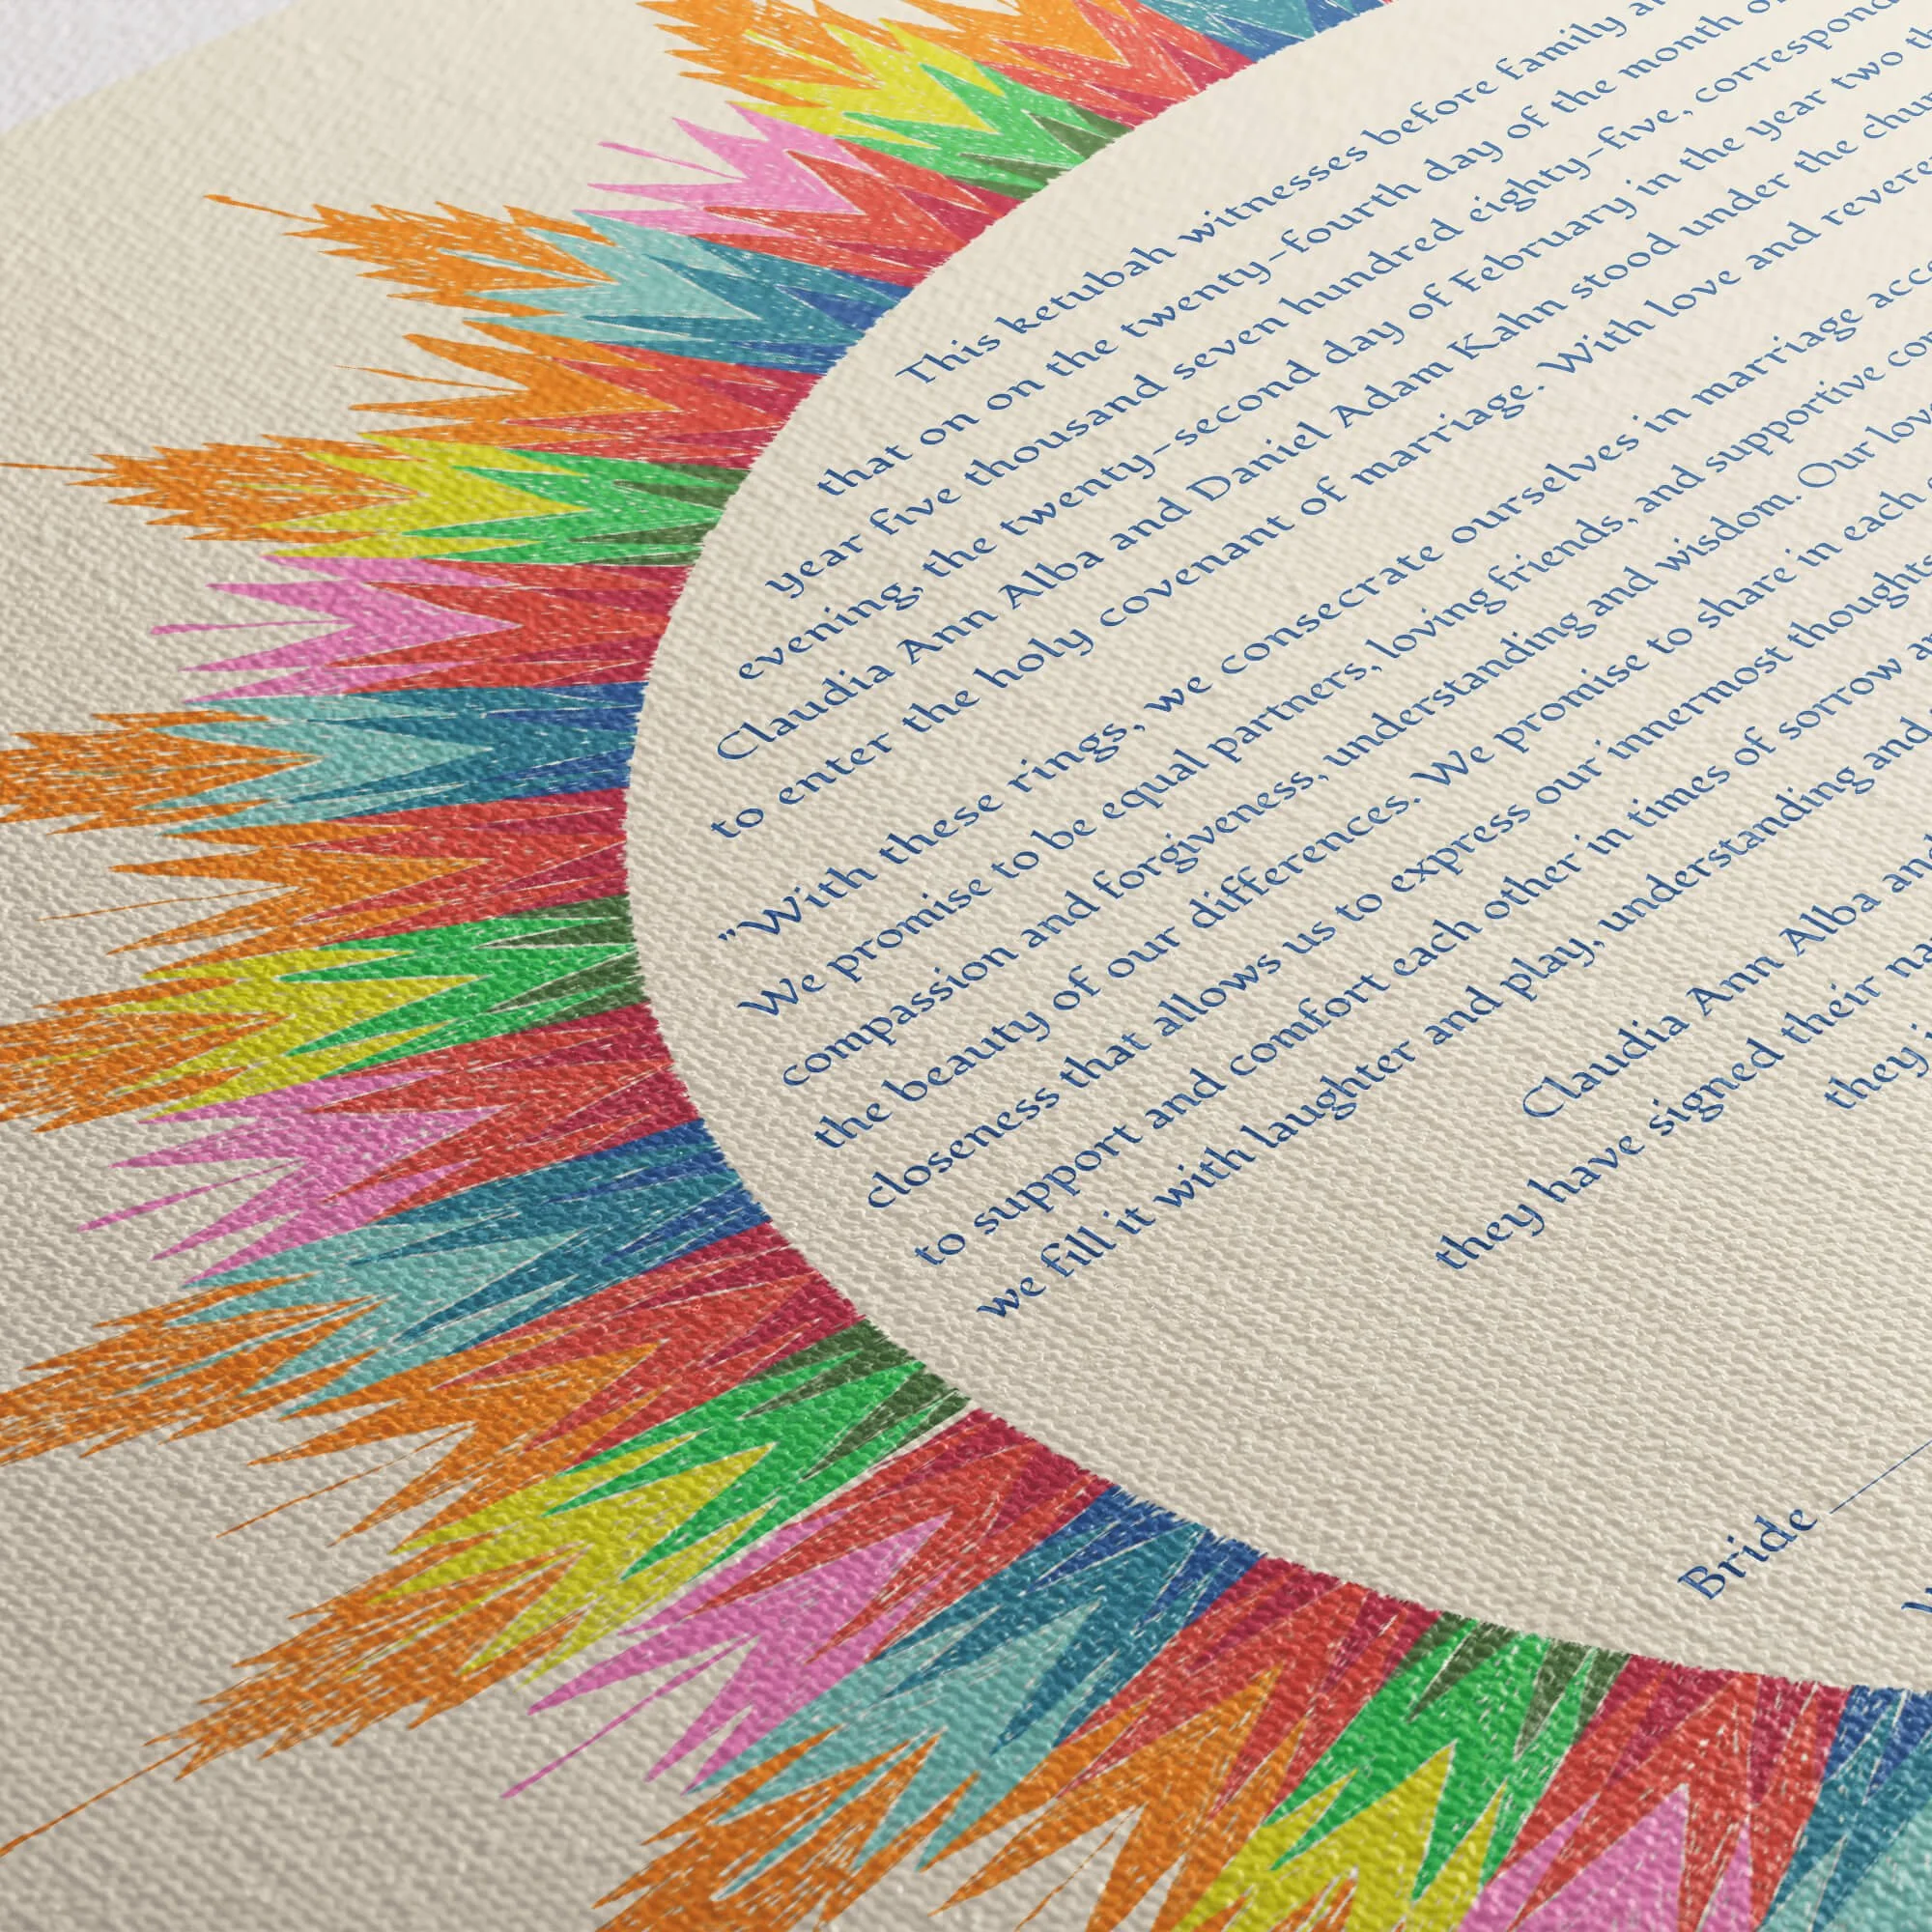 This ketubah witnesses before family
that on on the twenty-fourth day of the month
year five thousand seven hundred eighty-five,
evening, the twenty-second day of February in the year two
Claudia Ann Alba and Daniel Adam Kahn stood under the
to enter the holy covenant of marriage. With love and
"With these rings, we consecrate ourselves in marriage
We promise to be equal partners, loving friends, and supportive
compassion and forgiveness, understanding and wisdom. Our
the beauty of our differences. We promise to share in each
closeness that allows us to express our innermost thoughts
to support and comfort each other in times of sorrow
we fill it with laughter and play, understanding and
Claudia Ann Alba and
they have signed their
they
Bride